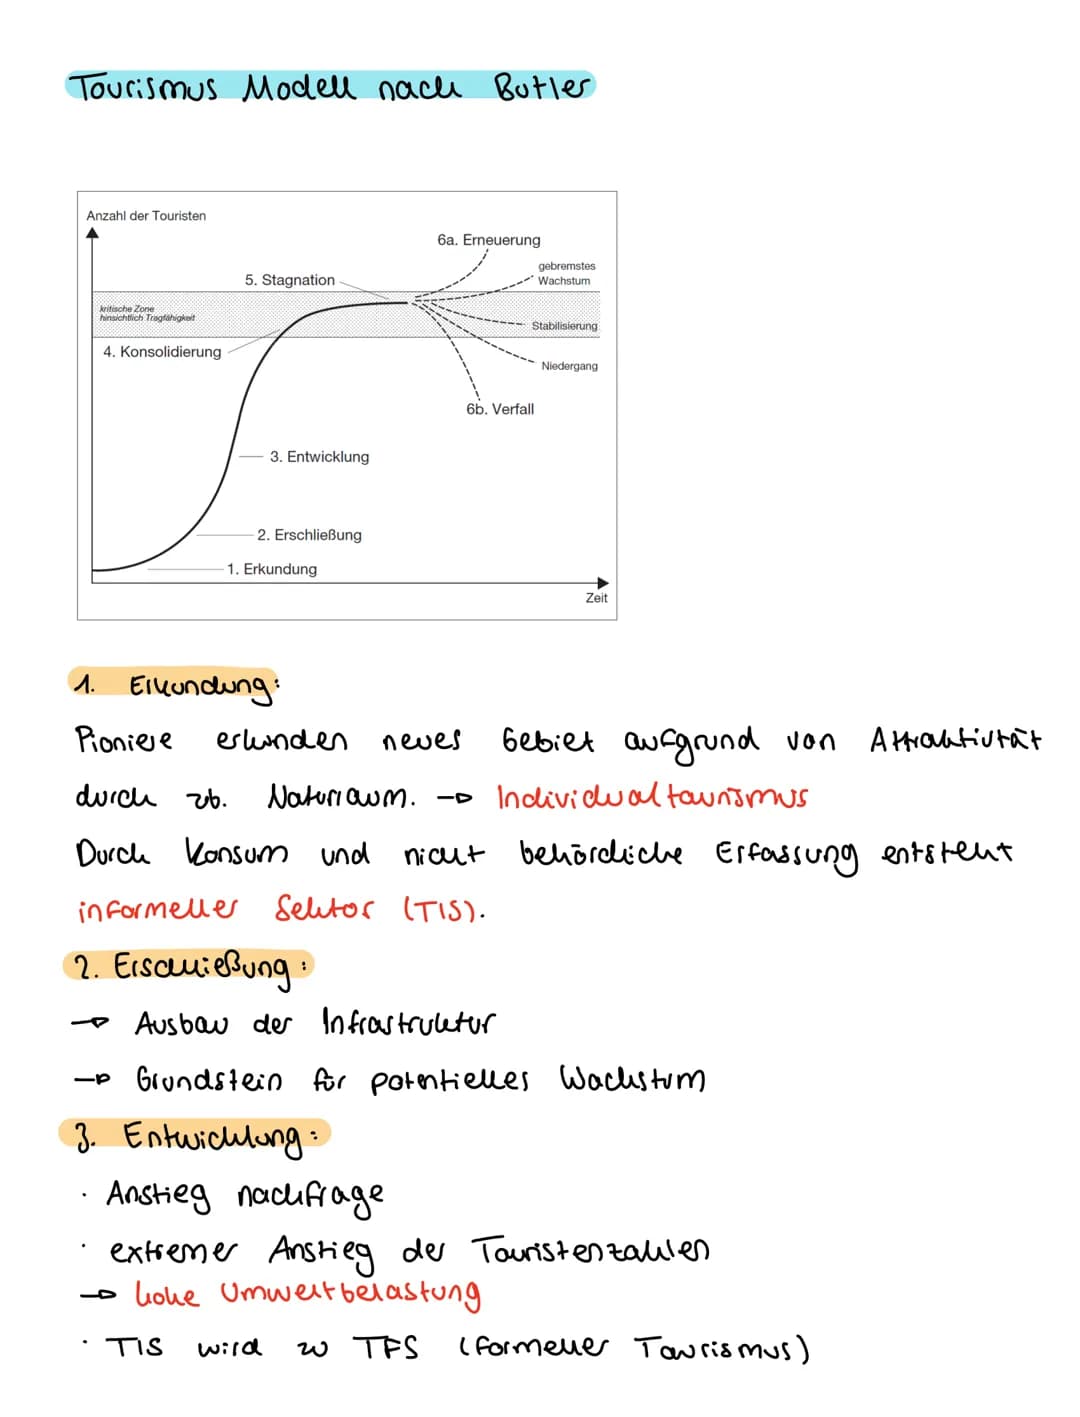 Tourismus Modell nach Butler
Anzahl der Touristen
6a. Erneuerung
gebremstes
Wachstum
5. Stagnation
kritische Zone
hinsichtlich Tragfähigkeit
Stabilisierung
4. Konsolidierung
Niedergang
6b. Verfall
3. Entwicklung
2. Erschließung
1. Erkundung
Zeit
1. Erkundung:
Pioniere erkunden neues Gebiet aufgrund von Attraktivität
durch zb. Naturraum. → Individualtourismus
Durch Konsum und nicht behördliche Erfassung entsteht
informeller Sektor (TIS).
2. Erschließung:
→ Ausbau der Infrastruktur
→ Grundstein für potentielles Wachstum
3. Entwicklung:
· Anstieg nachfrage
· extremer Anstieg der Touristenzahlen
→ hohe Umweltbelastung
· TIS wird zu TFS (formeller Tourismus)